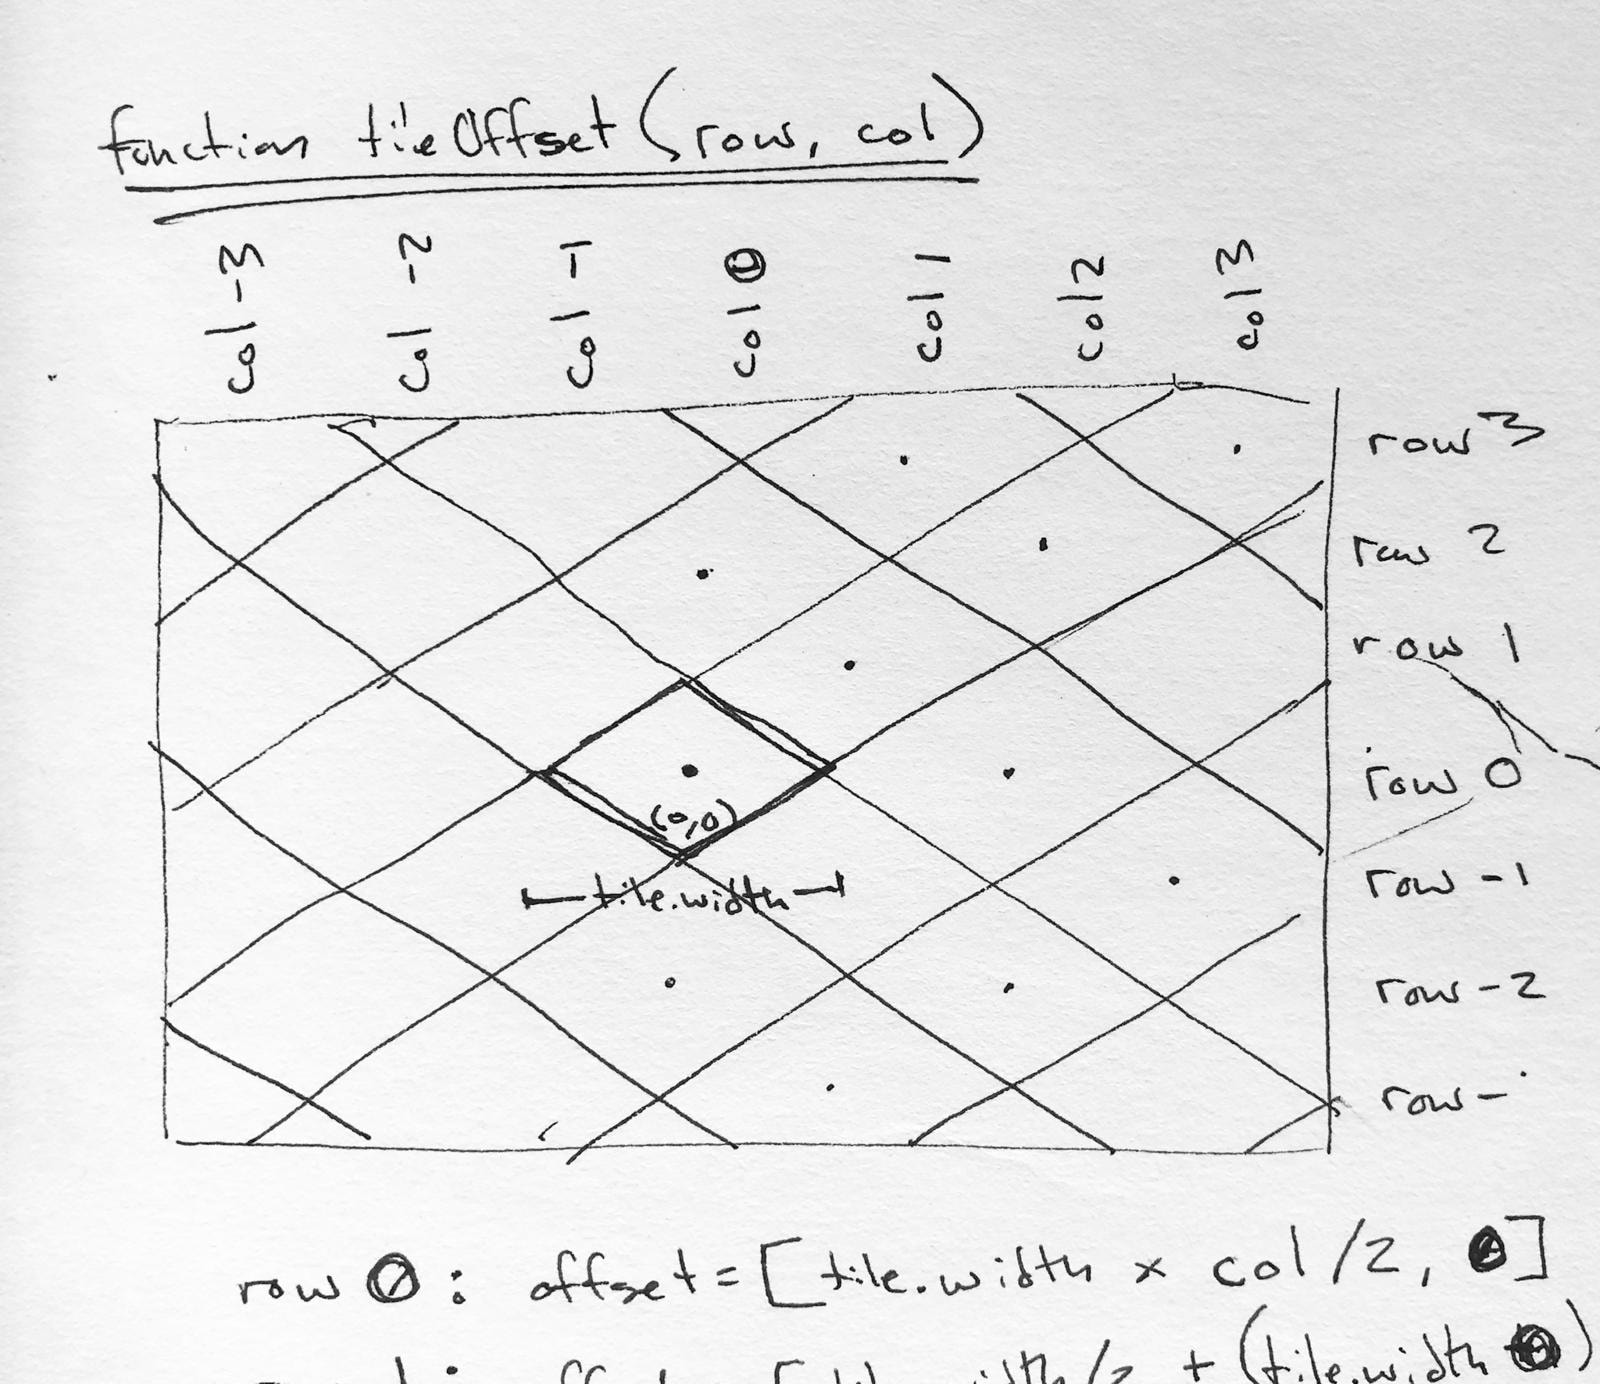 function tileOffset (row, col)
col -3
col -2
col -1
col 0
col 1
col 2
col 3
row 3
row 2
row 1
row 0
row -1
row -2
row -
(0,0)
tile.width
row 0: offset = [tile.width x col/2, 0]
+ (tile.width